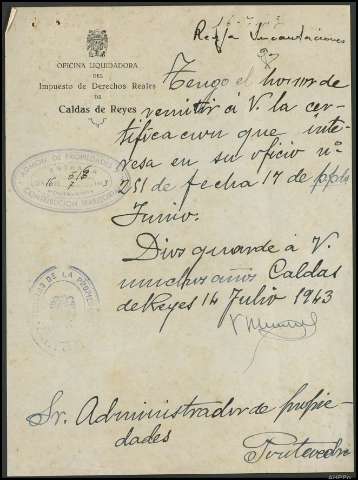 Refª Incautaciones
OFICINA LIQUIDADORA
DEL
Impuesto de Derechos Reales
DE
Caldas de Reyes
Tengo el honor de
remitir á V. la cer-
tificacion que inte-
resa en su oficio nº
251 de fecha 17 de ppdo
Junio.
Dios guarde á V.
muchos años Caldas
de Reyes 14 Julio 1943
ADMÓN. DE PROPIEDADES Y
CONTRIBUCIÓN TERRITORIAL
DE LA PROPIEDAD
Sr. Administrador de propie-
dades
Pontevedra
AHPPo